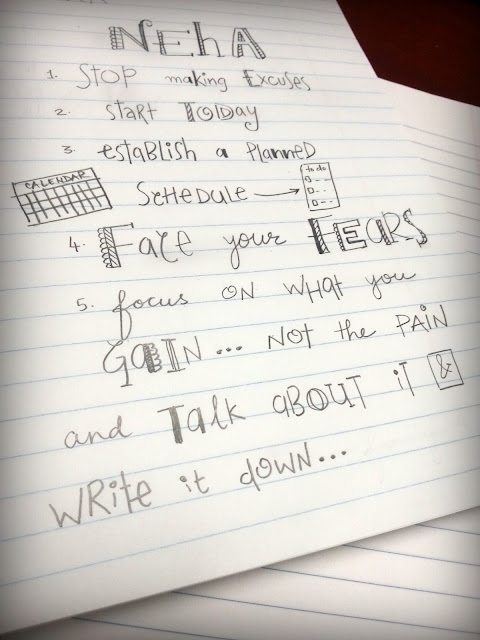 NEhA
1. STOP making Excuses
2. start TODAY
3. establish a planned
CALENDAR
schedule → to do
4. Face your FEARS
5. focus ON WHAT you
GAIN... NOT the PAIN
and Talk ABOUT it &
WRite it down...